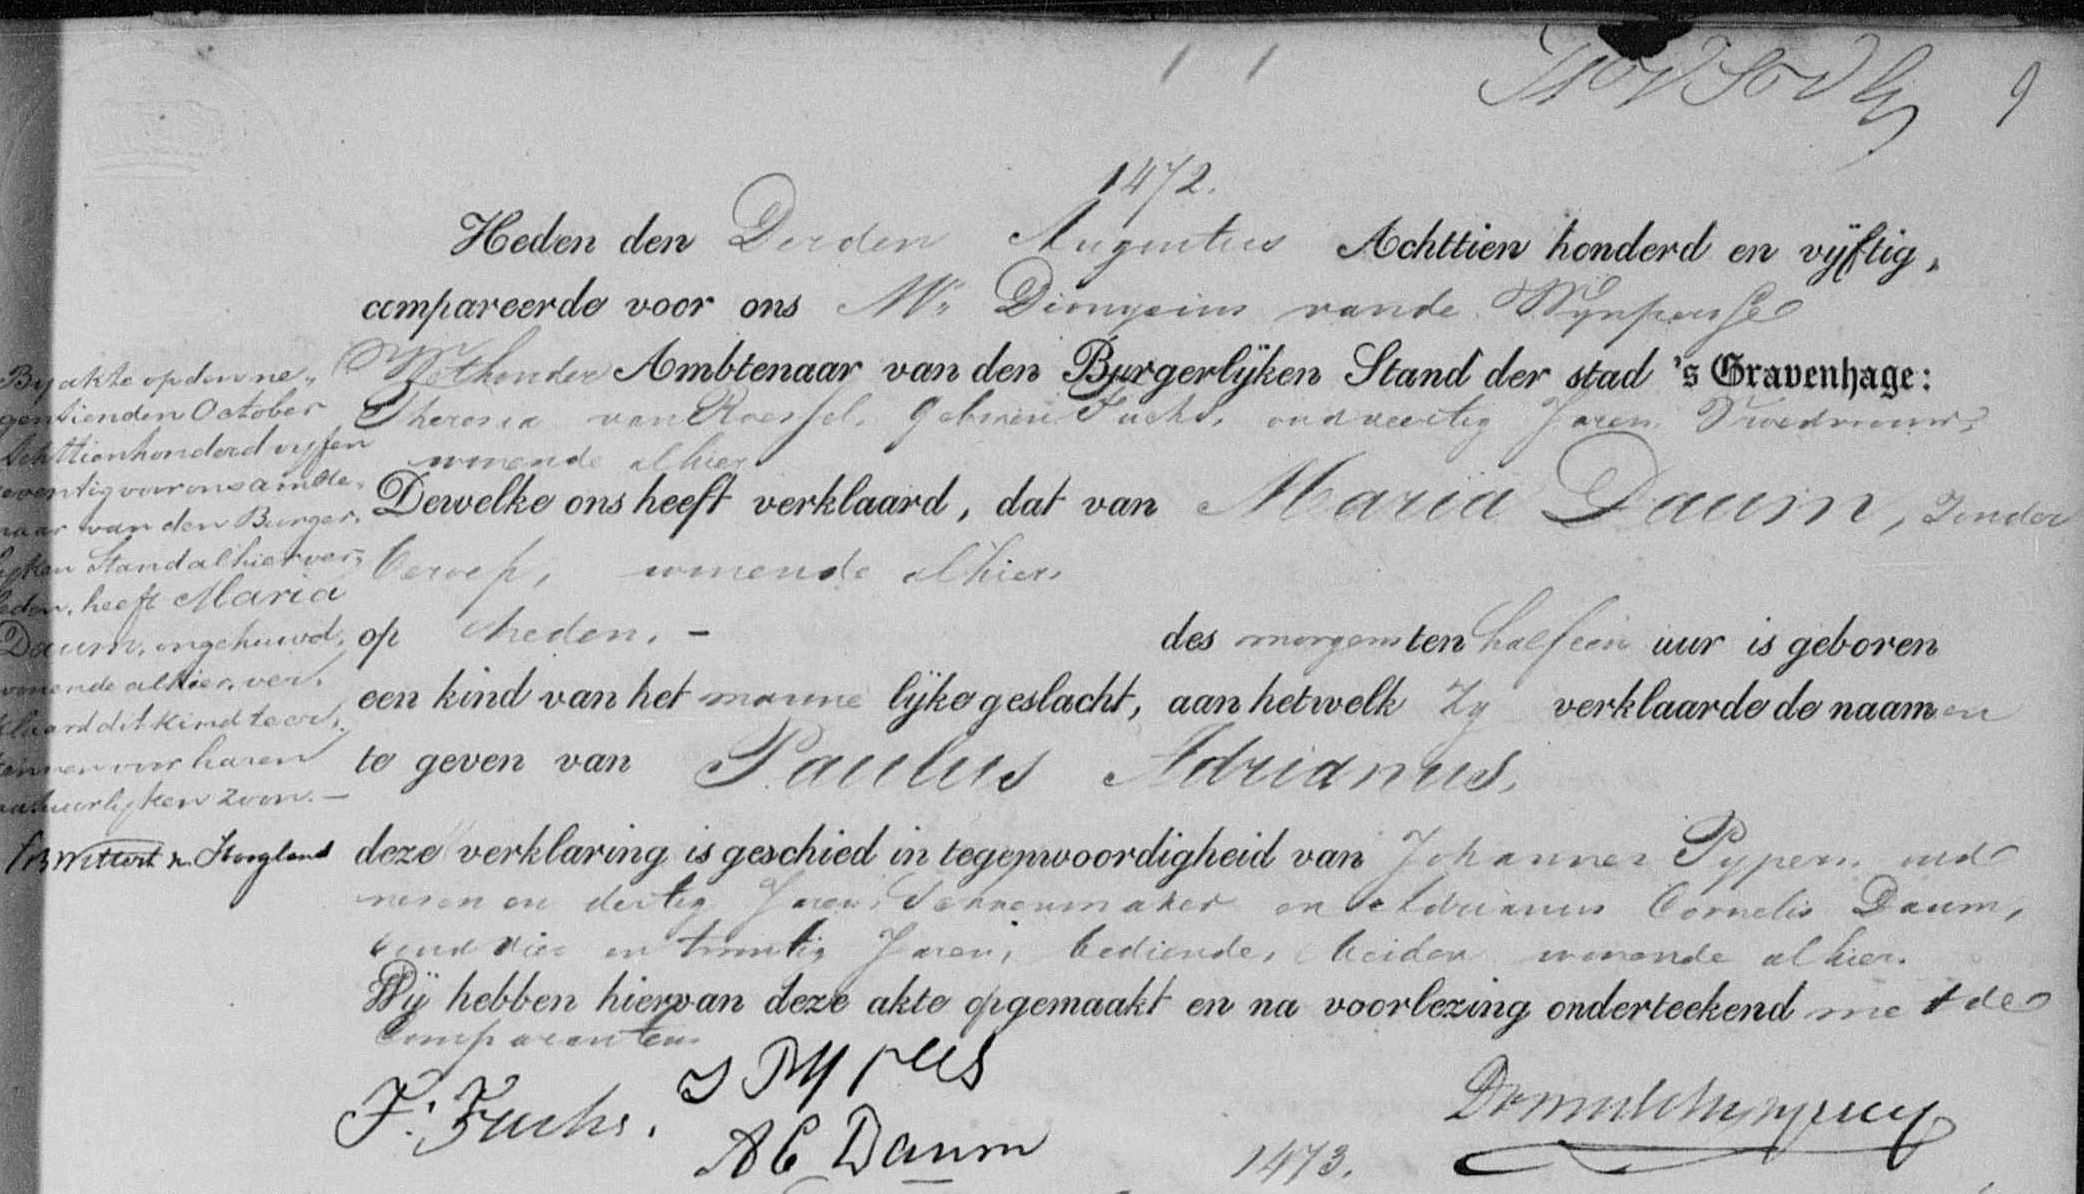 1472.
Heden den Derden Augustus Achttien honderd en vijftig,
compareerde voor ons Mr. Dionysius vande Wynpersse
Wethouder Ambtenaar van den Burgerlijken Stand der stad 's Gravenhage:
Theresia van Roessel, gehuwd Fuchs, oud veertig Jaren Vroedvrouw,
wonende alhier
Dewelke ons heeft verklaard, dat van Maria Daum, Zonder
beroep, wonende alhier,
op heden. - des morgens ten half een uur is geboren
een kind van het manne lijke geslacht, aan hetwelk Zy verklaarde de naamen
te geven van Paulus Adrianus.
deze verklaring is geschied in tegenwoordigheid van Johannes Pypers, oud
en dertig Jaren, Schoenmaker en Adrianus Cornelis Daum,
oud vier en twintig Jaren, bediende, beiden wonende alhier.
Wij hebben hiervan deze akte opgemaakt en na voorlezing onderteekend met de
Comparanten.
F. Fuchs.
J Pypers
A C Daum
1473.
By akte op den ne-
gentienden October
Achttienhonderd vyf en
zeventig voor ons ambte-
naar van den Burger-
lyken Stand alhier ver-
leden, heeft Maria
Daum, ongehuwd,
wonende alhier, ver-
klaard dit kind te er-
kennen voor haren
natuurlyken zoon. -
Wittert v. Hoogland
9